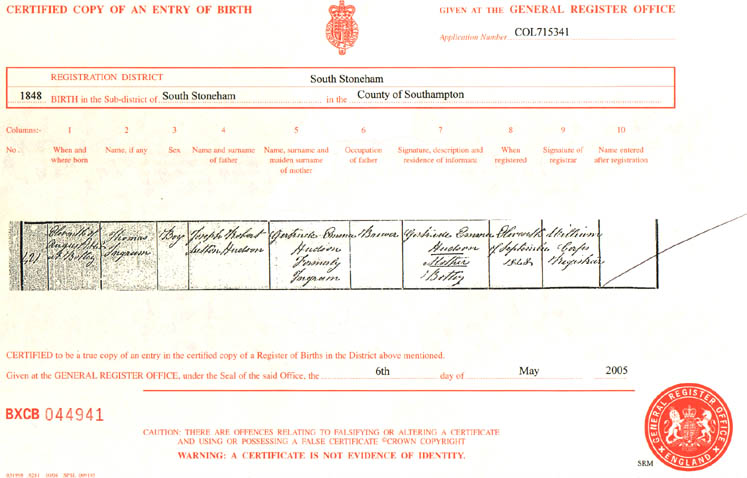 CERTIFIED COPY OF AN ENTRY OF BIRTH
GIVEN AT THE GENERAL REGISTER OFFICE
Application Number COL715341
REGISTRATION DISTRICT South Stoneham
1848 BIRTH in the Sub-district of South Stoneham in the County of Southampton
Columns:- 1 2 3 4 5 6 7 8 9 10
No. When and Name, if any Sex Name and surname Name, surname and Occupation Signature, description and When Signature of Name entered
where born of father maiden surname of father residence of informant registered registrar after registration
of mother
Eleventh of Thomas Boy Joseph Robert Gertrude Emma Brewer Gertrude Emma Eleventh William
August Ingram Hudson Hudson Hudson of September
Botley Formerly Mother 1848 Registrar
Ingram Botley
CERTIFIED to be a true copy of an entry in the certified copy of a Register of Births in the District above mentioned.
Given at the GENERAL REGISTER OFFICE, under the Seal of the said Office, the 6th day of May 2005
BXCB 044941
CAUTION: THERE ARE OFFENCES RELATING TO FALSIFYING OR ALTERING A CERTIFICATE
AND USING OR POSSESSING A FALSE CERTIFICATE ©CROWN COPYRIGHT
WARNING: A CERTIFICATE IS NOT EVIDENCE OF IDENTITY.
GENERAL REGISTER OFFICE
ENGLAND
SRM